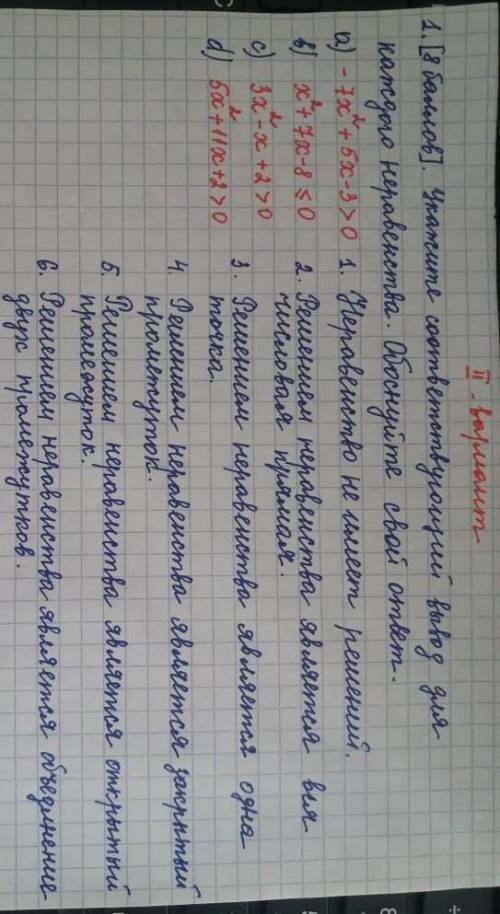 II - вариант
1. [8 баллов]. Укажите соответствующий вывод для
каждого неравенства. Обоснуйте свой ответ.
a) -7x²+5x-3>0 1. Неравенство не имеет решений.
b) x²+7x-8≤0 2. Решением неравенства является вся
числовая прямая.
c) 3x²-x+2>0 3. Решением неравенства является одна
точка.
d) 5x²+11x+2>0 4. Решением неравенства является закрытый
промежуток.
5. Решением неравенства является открытый
промежуток.
6. Решением неравенства является объединение
двух промежутков.